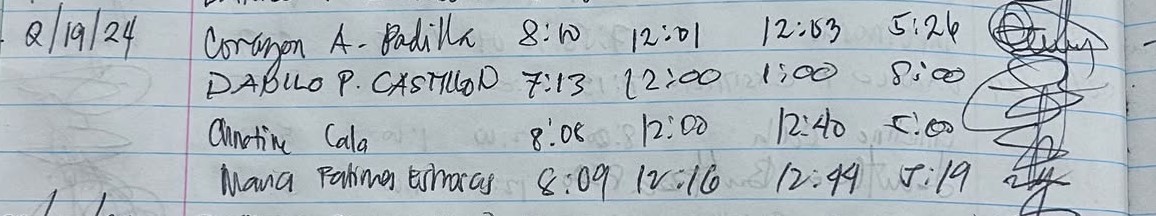 2/19/24 Corazon A. Padilla 8:10 12:01 12:03 5:26
DABLLO P. CASTILLON 7:13 12:00 1:00 8:00
Christine Cala 8:08 12:00 12:40 5:00
Maria Fatima 8:09 12:16 12:44 5:19